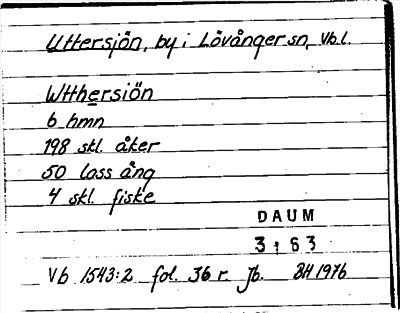 Uttersjön, by i Lövånger sn, Vb l.
Wtthersiön
6 hmn
198 skl. åker
50 lass äng
4 skl. fiske
DAUM
3:63
Vb 1543:2 fol. 36 r. Jb. BH 1976